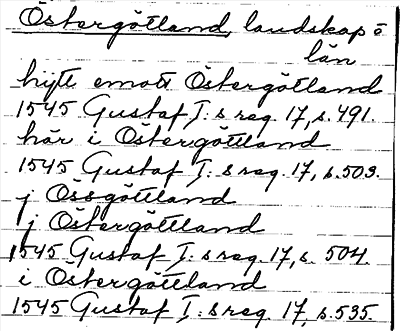 Östergötland, landskap o
län
hijtt emott Östergötland
1545 Gustaf I:s reg. 17, s. 491.
här i Östergöttland
1545 Gustaf I:s reg. 17, s. 503.
j Össgöttland
j Östergöttland
1545 Gustaf I:s reg. 17, s. 504.
i Östergöttland
1545 Gustaf I:s reg. 17, s. 535.